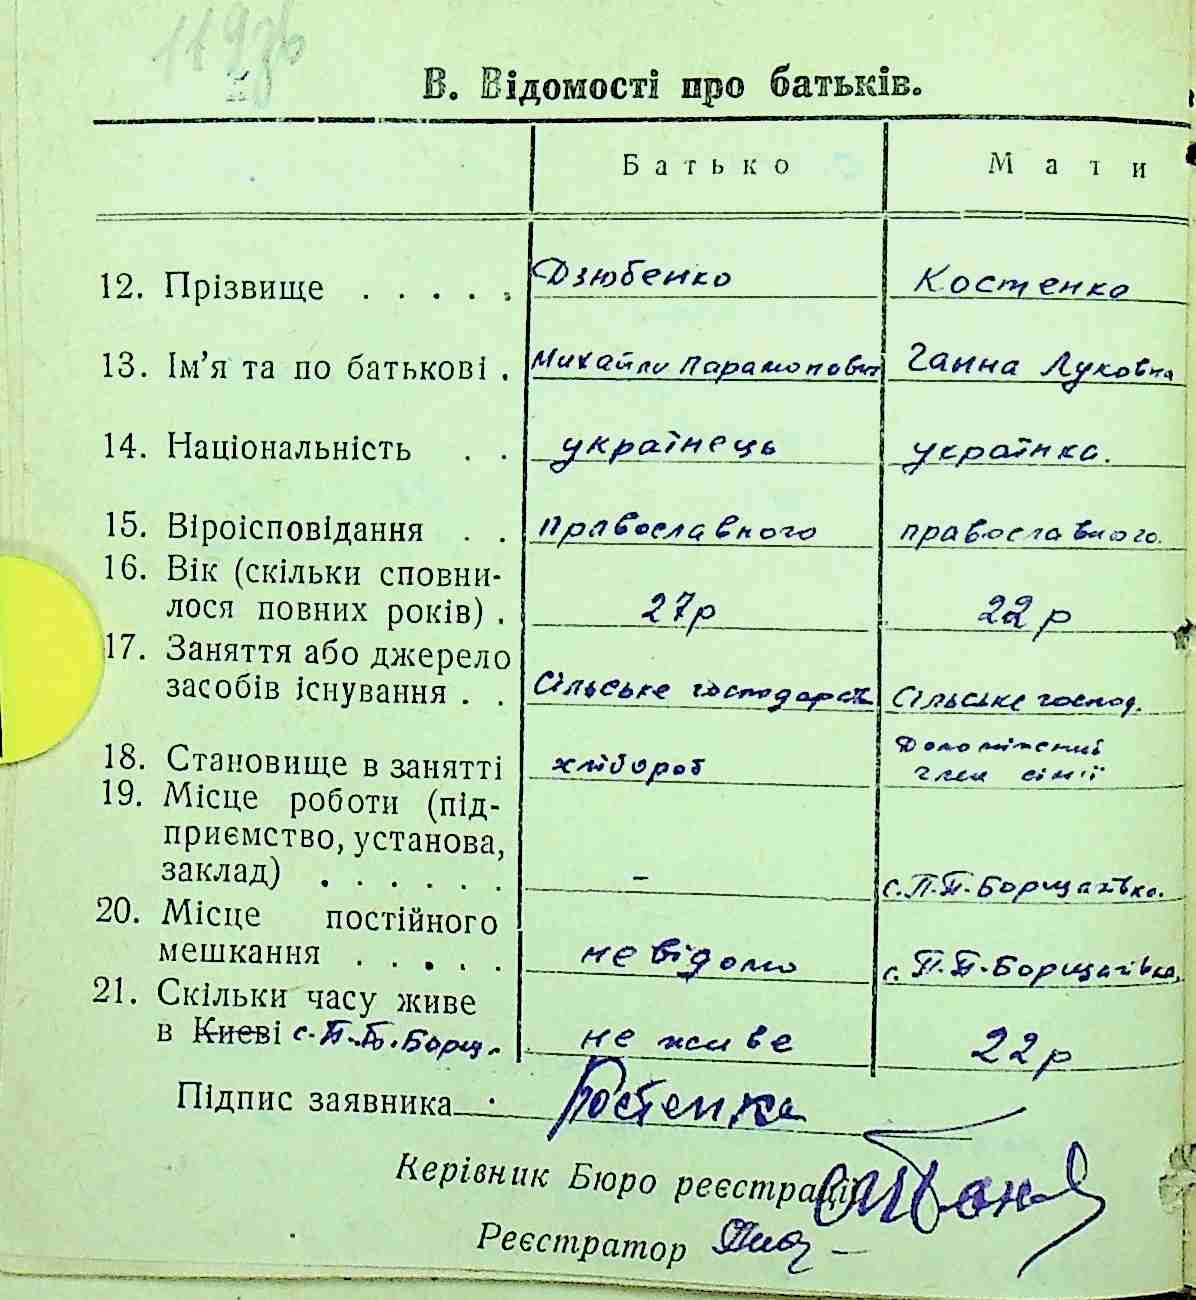 В. Відомості про батьків.
Батько Мати
12. Прізвище . . . . . Дзюбенко Костенко
13. Ім'я та по батькові . Михайло Парамонович Ганна Луковна
14. Національність . . українець українка.
15. Віроісповідання . . православного православного.
16. Вік (скільки сповни-
лося повних років) . 27р 22р
17. Заняття або джерело
засобів існування . . Сільське господарст Сільське господ.
18. Становище в занятті хлібороб Допоміжний
член сім'ї
19. Місце роботи (під-
приємство, установа,
заклад) . . . . . . - с. П.П.-Борщагівка.
20. Місце постійного
мешкання . . . . . невідомо с. П.П.-Борщагівка.
21. Скільки часу живе
в Києві с. П.-Б. Борщ. не живе 22р
Підпис заявника Костенка
Керівник Бюро реєстрації
Реєстратор